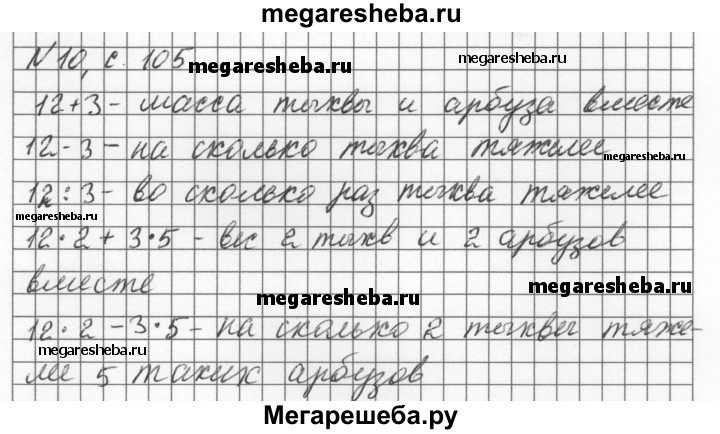 megaresheba.ru
N10, с. 105
megaresheba.ru
megaresheba.ru
12+3 - масса тыквы и арбуза вместе
12 - 3 - на сколько тыква тяжелее
megaresheba.ru
12 : 3 - во сколько раз тыква тяжелее
megaresheba.ru
12 · 2 + 3 · 5 - вес 2 тыкв и 2 арбузов
вместе
megaresheba.ru
megaresheba.ru
12 · 2 - 3 · 5 - на сколько 2 тыквы тяже-
megaresheba.ru
лее 5 таких арбузов
Мегарешеба.ру